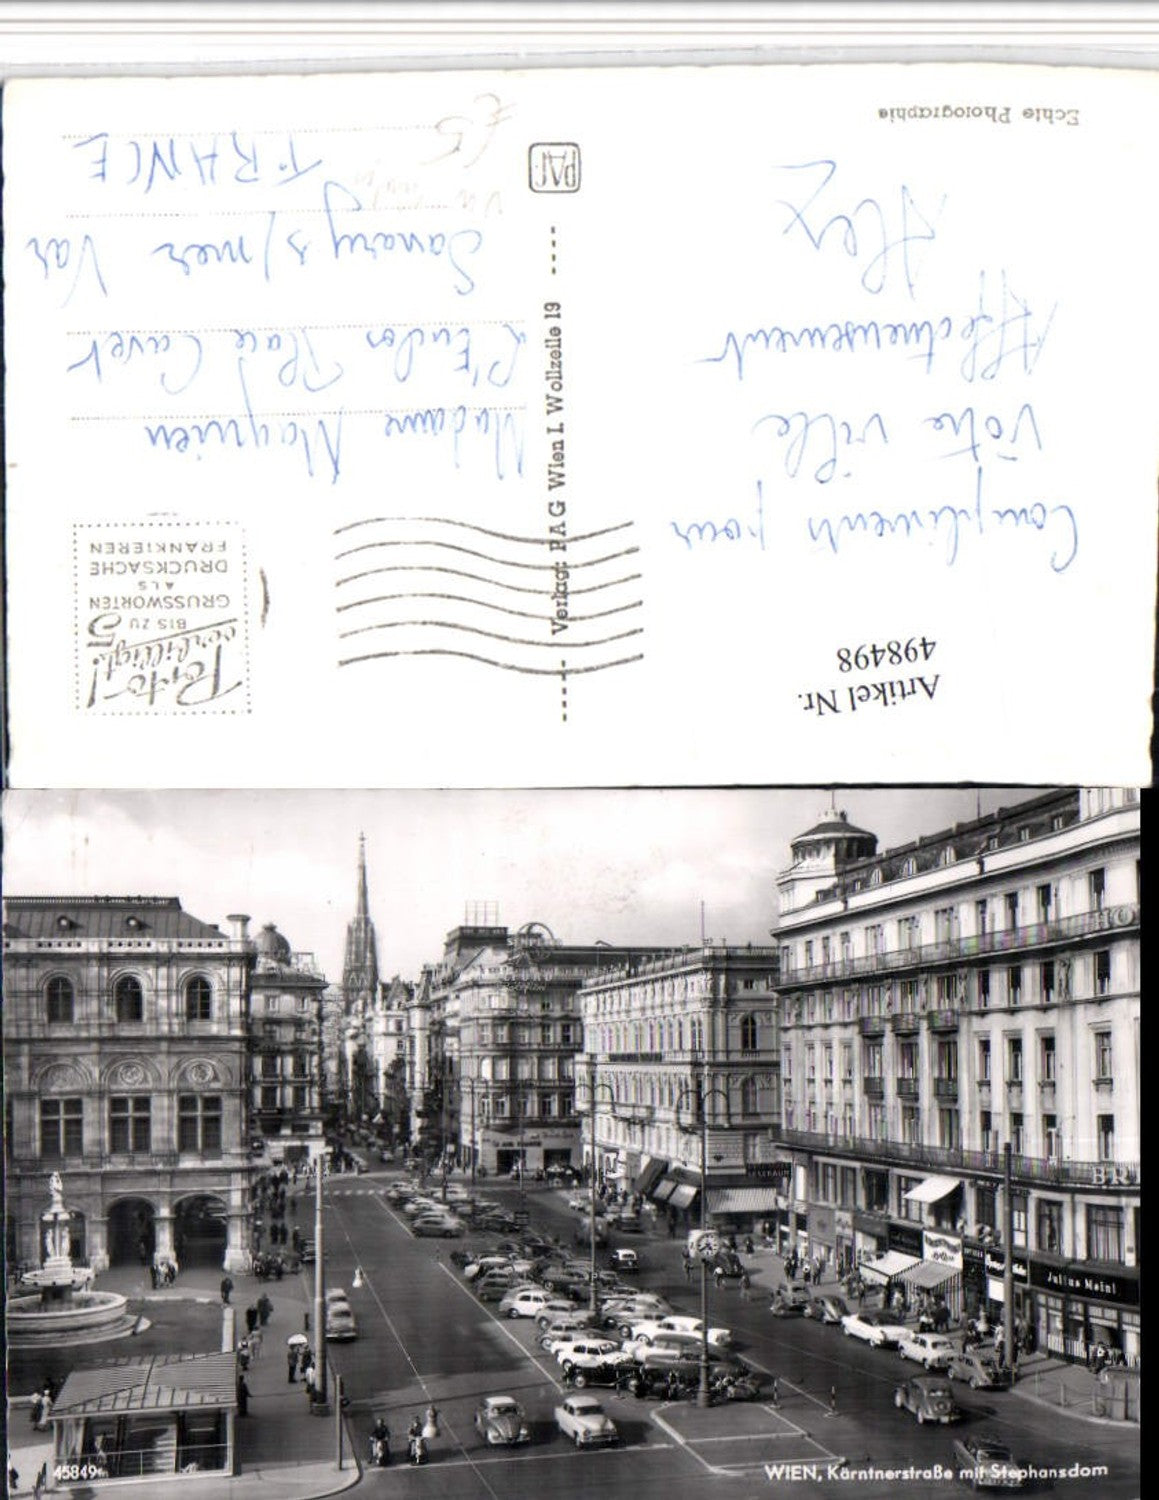 Artikel Nr.
498498
Compliments pour
Votre ville
Affectueusement
Alex
Echte Photographie
Verlag: PAG Wien I. Wollzeile 19
PAG
Porto-
verbilligt!
BIS ZU 5
GRUSSWORTEN
ALS
DRUCKSACHE
FRANKIEREN
Madame
Place Cavet
Sanary s/mer Var
FRANCE
£5
HO
BR
Julius Meinl
45849
WIEN, Kärntnerstraße mit Stephansdom